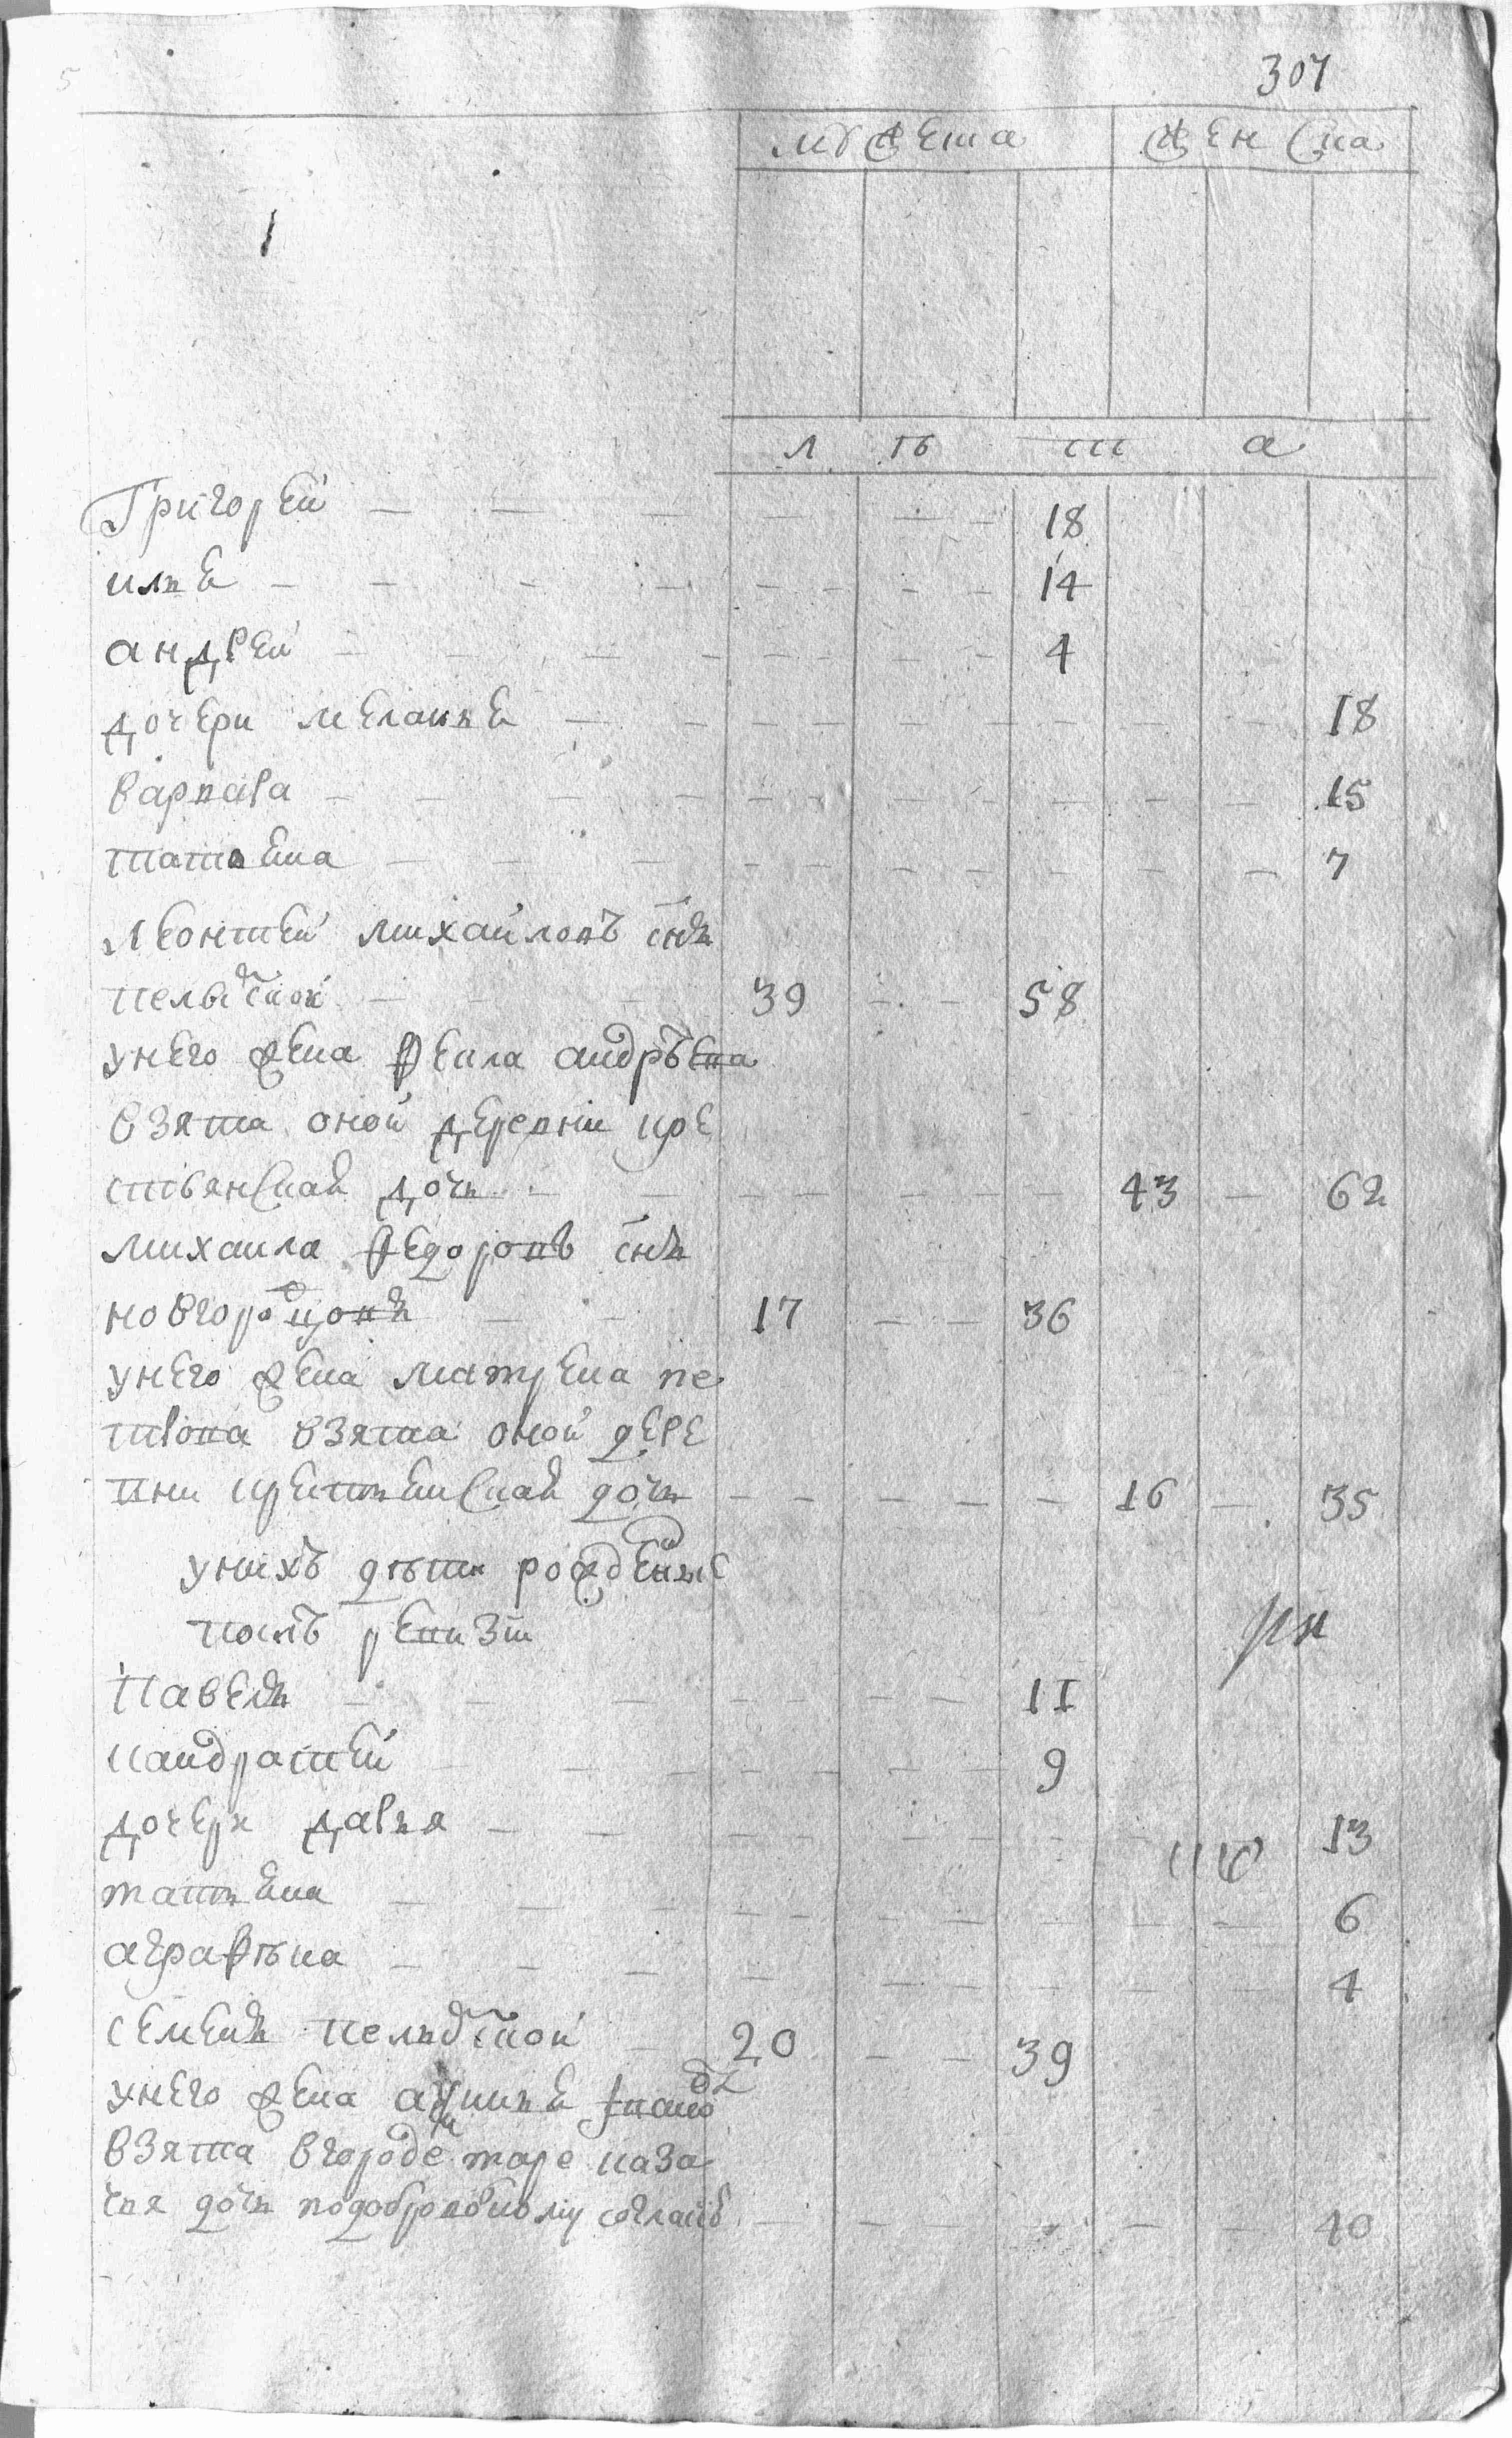 307
мужеска женска
1
л ѣ т а
Григорей — — — — — 18
илье — — — — — 14
андрей — — — — — 4
дочери меланье — — — — — 18
варвара — — — — — 15
татьена — — — — — 7
Леонтей михайловъ снъ
пелы͡мской — — 39 — 58
унего жена Фекла андрѣева
взята оной деревни кре
стьянская дочь — — — 43 — 62
михаила Федоровъ снъ
новгородцовъ — — 17 — 36
унего жена матрена пе
трова взята оной дере
вни крестьенская дочь — — — 16 — 35
унихъ дѣти рожденые
послѣ ревизіи
Павелъ — — — 11
кандратей — — — 9
дочери дарья — — — 13
татьена — — — 6
аграфѣна — — — 4
семенъ пелы͡мской 20 — 39
унего жена иванов
взята вгороде таре каза
чья дочь подобровольному согласію — — — 40